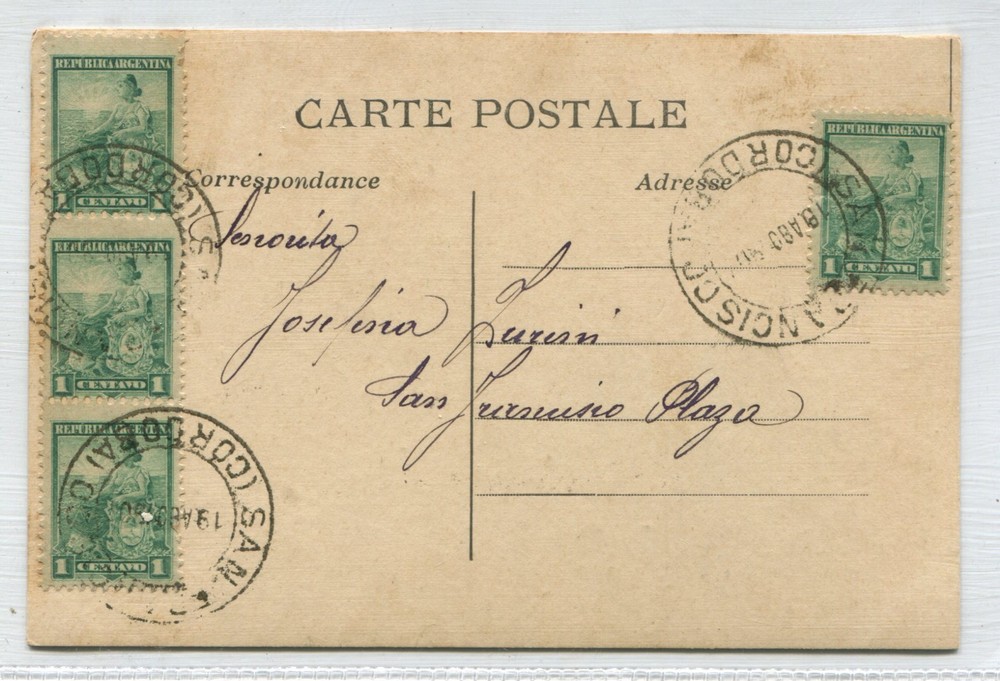 CARTE POSTALE
Correspondance
Adresse
Señorita
Josefina Turini
San Francisco Plaza
REPUBLICA ARGENTINA
1 CENTAVO 1
REPUBLICA ARGENTINA
1 CENTAVO 1
REPUBLICA ARGENTINA
1 CENTAVO 1
REPUBLICA ARGENTINA
1 CENTAVO 1
SAN FRANCISCO (CORDOBA)
(CORDOBA) S
SAN (CORDOBA)